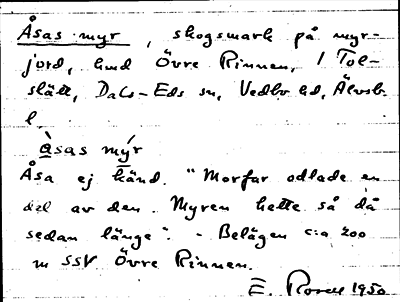 Åsas myr, skogsmark på myr-
jord, hmd Övre Rinnen, / Tol-
slätt, Dals-Eds sn, Vedbo hd, Älvsb.
l.
àsas mýr
Åsa ej känd. "Morfar odlade en
del av den. Myren hette så då
sedan länge". - Belägen c:a 200
m SSV Övre Rinnen.
E. 1950